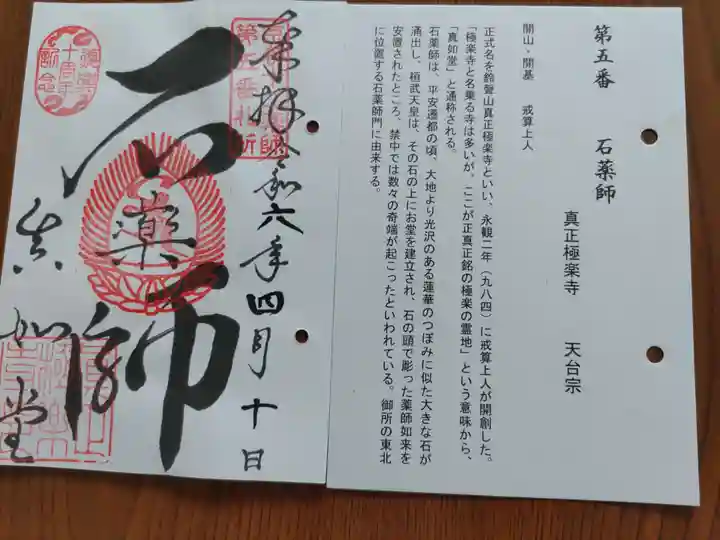 第五番　石薬師
真正極楽寺　天台宗
開山・開基　戒算上人
正式名を鈴聲山真正極楽寺といい、永観二年（九八四）に戒算上人が開創した。
「極楽寺と名乗る寺は多いが、ここが正真正銘の極楽の霊地」という意味から、
「真如堂」と通称される。
石薬師は、平安遷都の頃、大地より光沢のある蓮華のつぼみに似た大きな石が
涌出し、桓武天皇は、その石の上にお堂を建立され、石の頭で彫った薬師如来を
安置されたところ、禁中では数々の奇端が起こったといわれている。御所の東北
に位置する石薬師門に由来する。
奉拝
令和六年四月十日
石薬師
真如堂
十周年